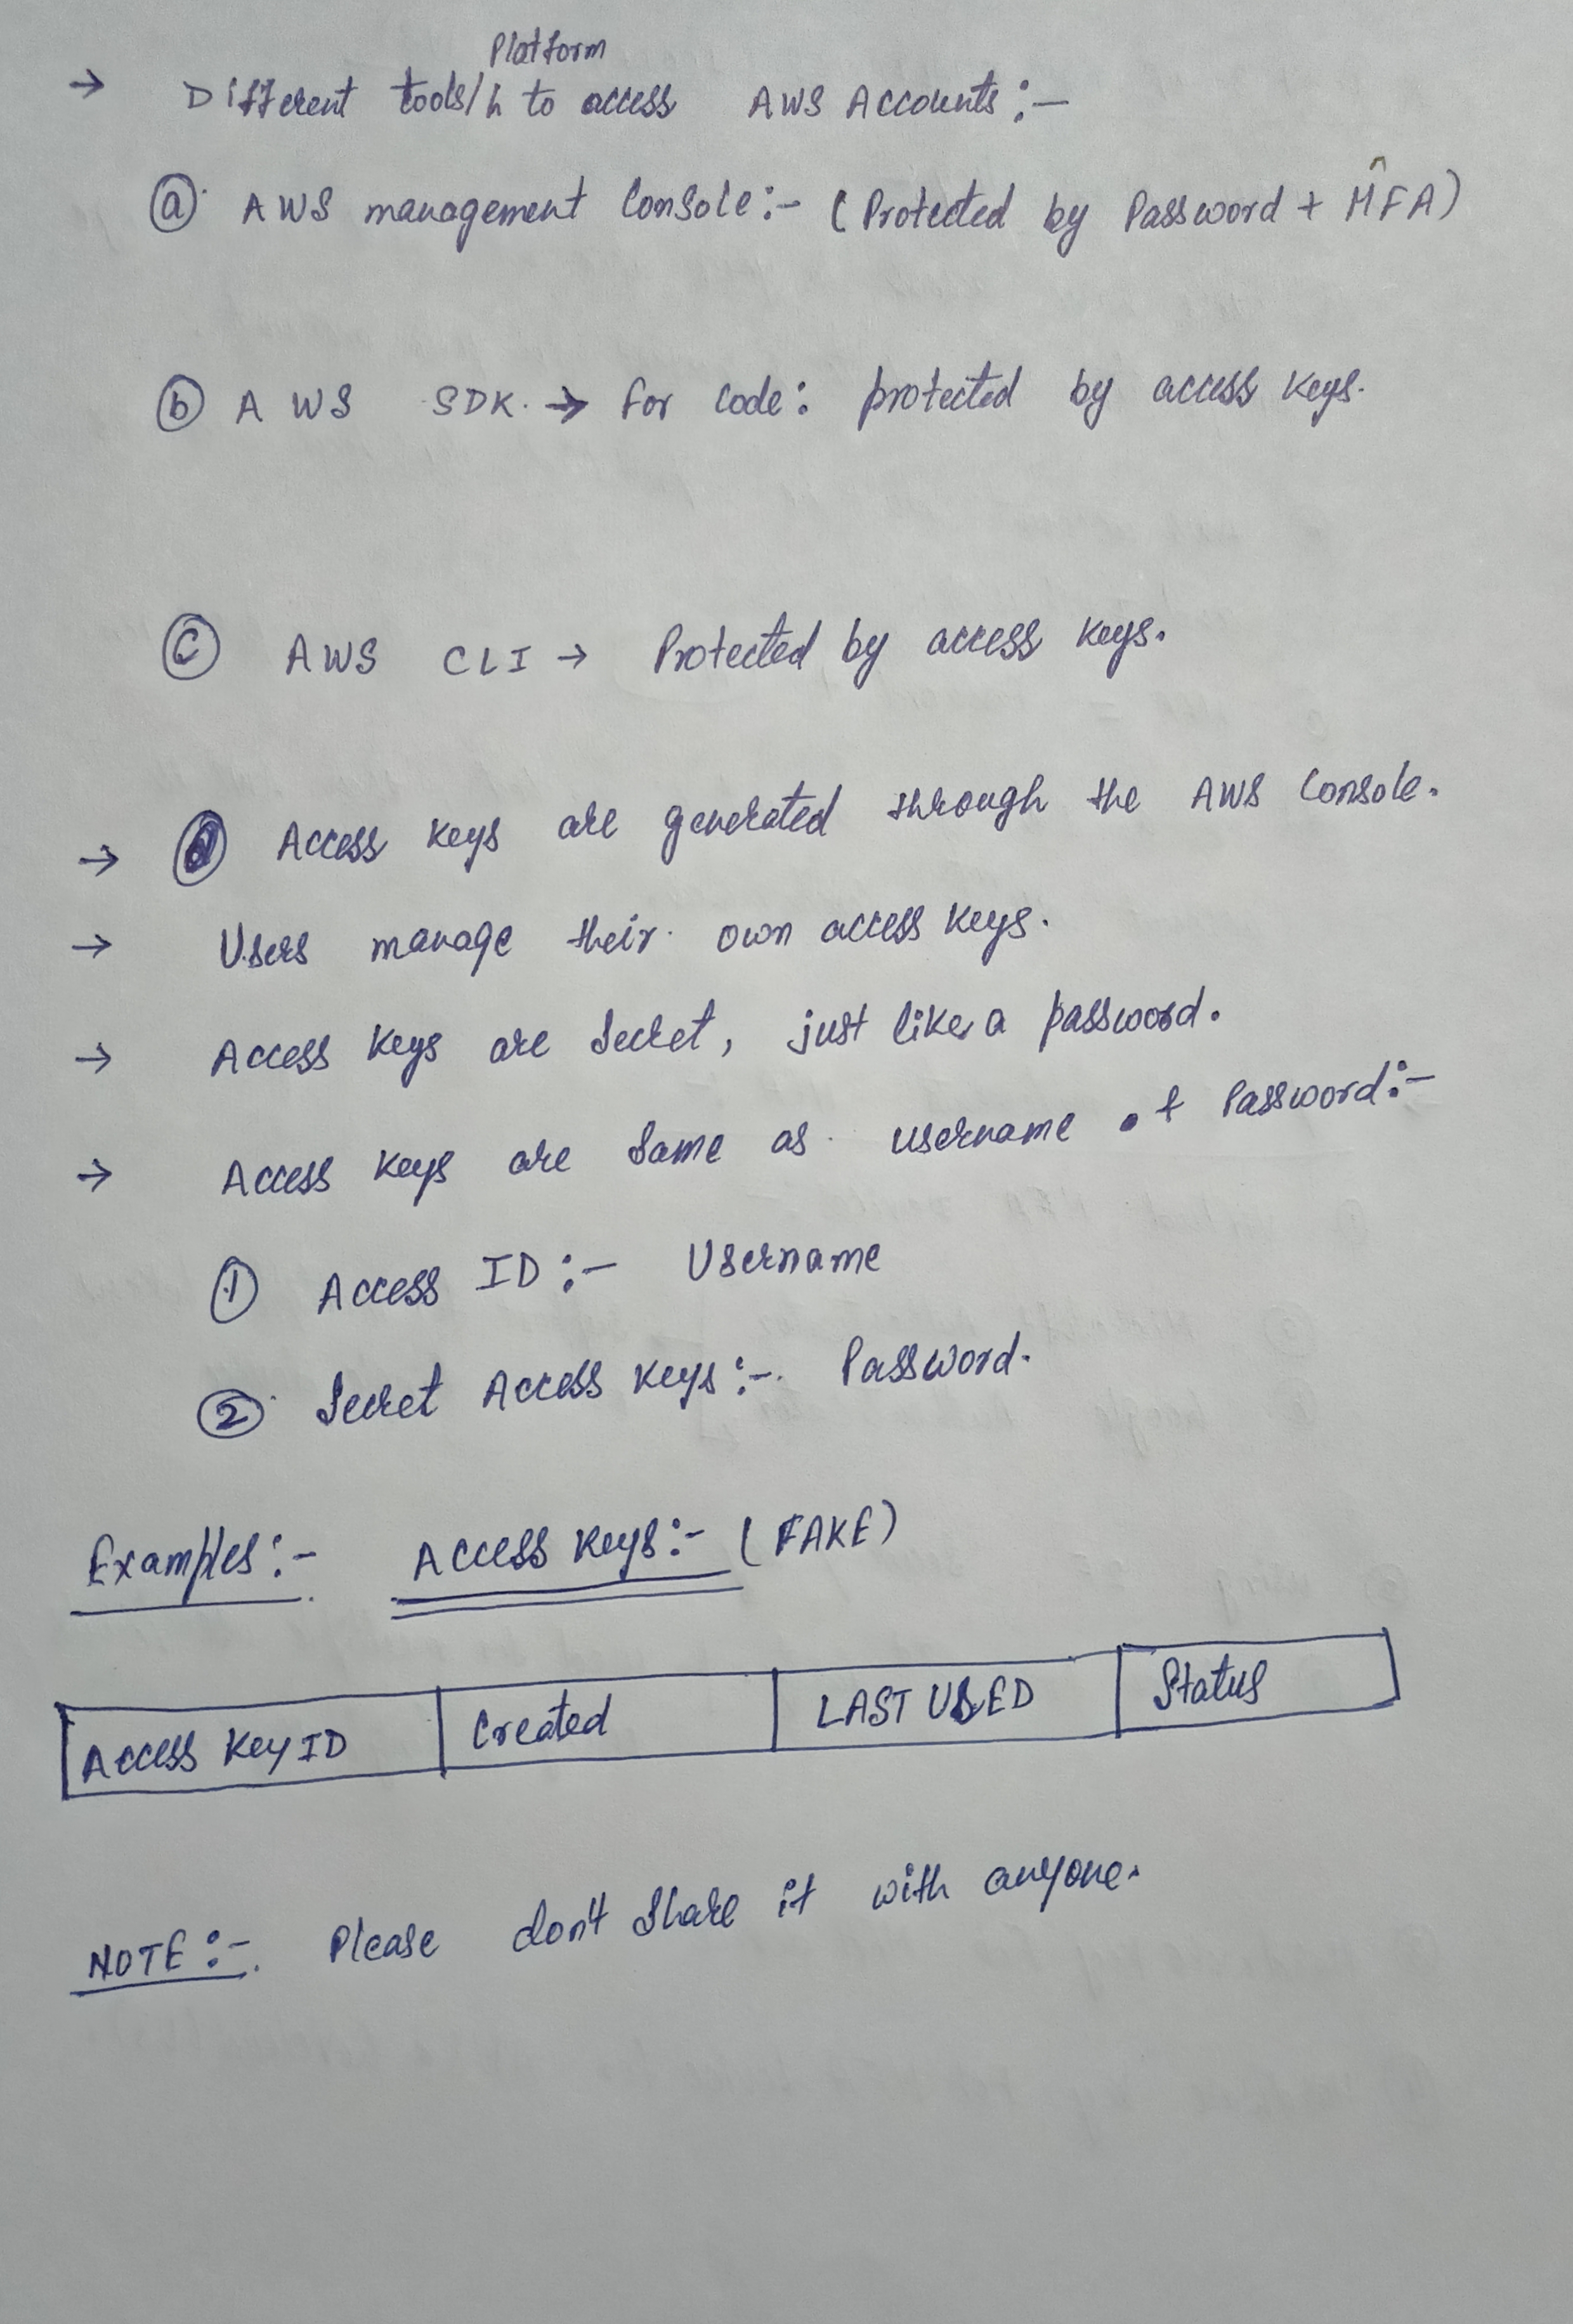 Platform
→ Different tools/h to access AWS Accounts:-
ⓐ AWS management Console:- (Protected by Password + MFA)
ⓑ AWS SDK. → For Code: protected by access keys.
ⓒ AWS CLI → Protected by access keys.
→ Access keys are generated through the AWS Console.
→ Users manage their own access keys.
→ Access keys are Secret, just like a password.
→ Access keys are Same as username + Password:-
① Access ID:- Username
② Secret Access keys:- Password.
Examples:- Access keys:- (FAKE)
Access Key ID Created LAST USED Status
NOTE:- Please don't share it with anyone.